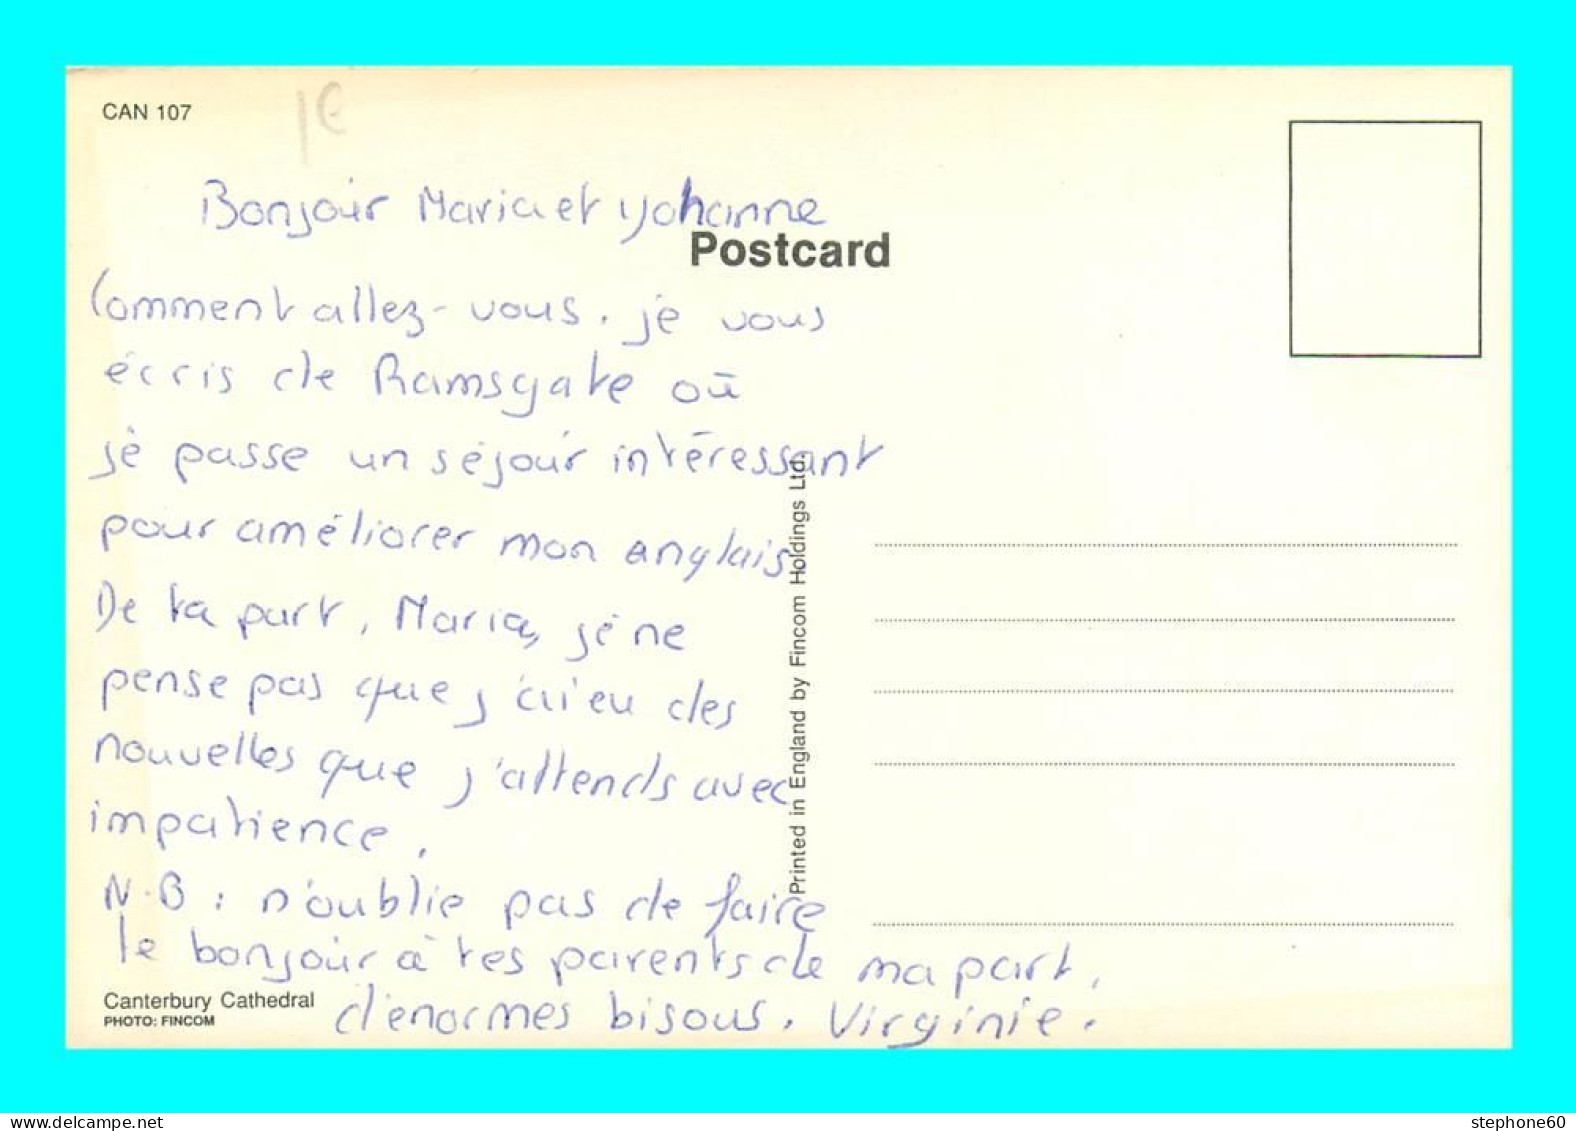 CAN 107
1€
Bonjour Maria et Yohanne
Postcard
Comment allez-vous. je vous
écris de Ramsgate où
je passe un séjour intéressant
pour améliorer mon anglais.
De ta part, Maria, je ne
pense pas que j'ai eu des
nouvelles que j'attends avec
impatience.
N.B : n'oublie pas de faire
le bonjour à tes parents de ma part.
d'énormes bisous. Virginie.
Canterbury Cathedral
PHOTO: FINCOM
Printed in England by Fincom Holdings Ltd.
www.delcampe.net
stephone60